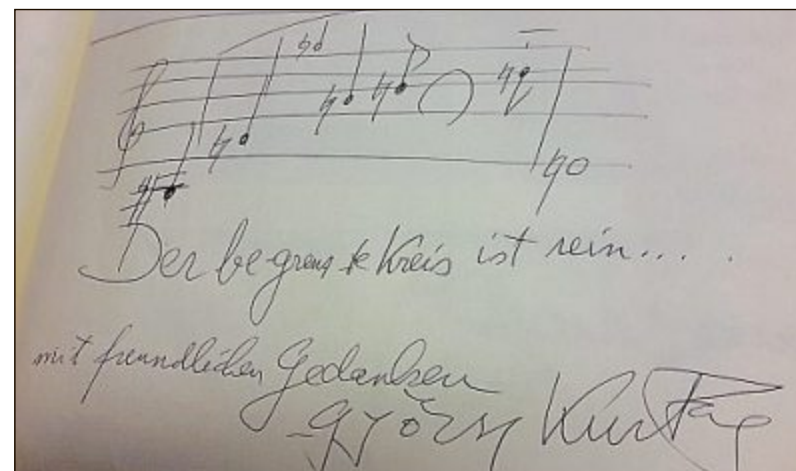 Der begrenzte Kreis ist rein.... .
mit freundlichen Gedanken
György Kurtág